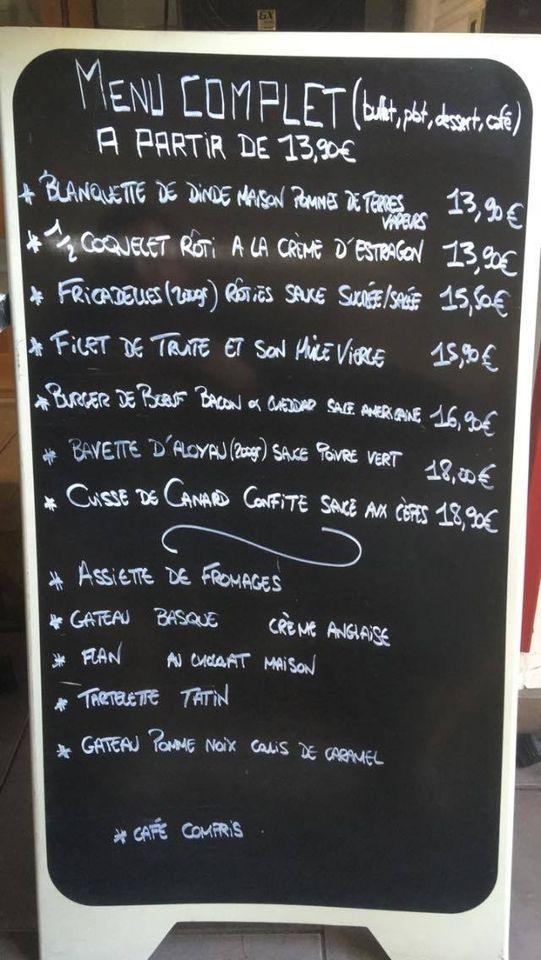 MENU COMPLET (buffet, plat, dessert, café)
A PARTIR DE 13,90€
* BLANQUETTE DE DINDE MAISON POMMES DE TERRES VAPEURS 13,90€
* 1/2 COQUELET RÔTI A LA CRÈME D'ESTRAGON 13,90€
* FRICADELLES (200gr) RÔTIES SAUCE SUCRÉE/SALÉE 15,50€
* FILET DE TRUITE ET SON HUILE VIERGE 15,90€
* BURGER DE BŒUF BACON CHEDDAR SAUCE AMERICAINE 16,90€
* BAVETTE D'ALOYAU (200gr) SAUCE POIVRE VERT 18,00€
* CUISSE DE CANARD CONFITE SAUCE AUX CÈPES 18,90€
* ASSIETTE DE FROMAGES
* GATEAU BASQUE CRÈME ANGLAISE
* FLAN AU CHOCOLAT MAISON
* TARTELETTE TATIN
* GATEAU POMME NOIX COULIS DE CARAMEL
* CAFÉ COMPRIS